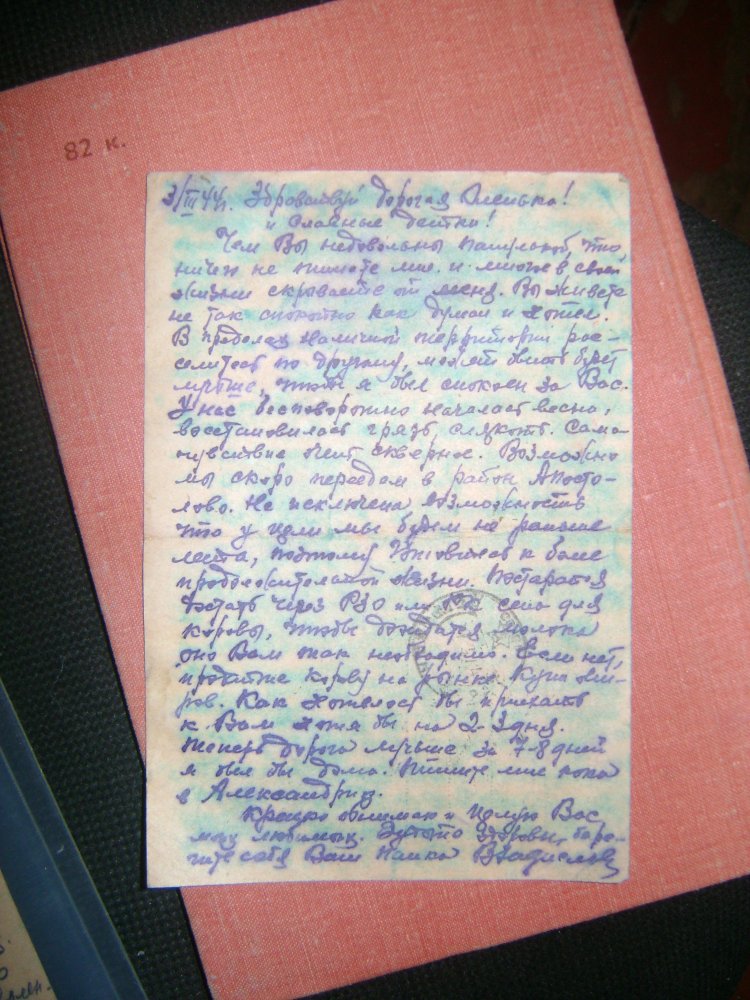 82 к.
3/III 44г. Здравствуй дорогая Оленька!
и славные детки!
Чем Вы недовольны папулькой, что
ничего не пишете мне и многое в своей
жизни скрываете от меня. Вы живете
не так спокойно как думал и хотел.
В пределах наличной территории рас-
селитесь по другому, может быть будет
лучше, чтоб я был спокоен за Вас.
У нас бесповоротно началась весна,
восстановилась грязь, слякоть. Само-
чувствие очень скверное. Возможно
мы скоро переедем в район Апосто-
лово. Не исключена возможность
что у цели мы будем не раньше
лета, поэтому готовьтесь к более
продолжительной жизни. Постарайся
достать через РЗО или сена для
коровы, чтобы дождаться молока
оно Вам так необходимо. Если нет,
продайте корову на рынке купи жи-
ров. Как хотелось бы приехать
к Вам хотя бы на 2-3 дня.
Теперь дорога лучше за 7-8 дней
я был бы дома. Пишите мне пока
в Александрию.
Крепко обнимаю и целую Вас
моих любимых. Будьте здоровы, бере-
гите себя Ваш папка Владислав